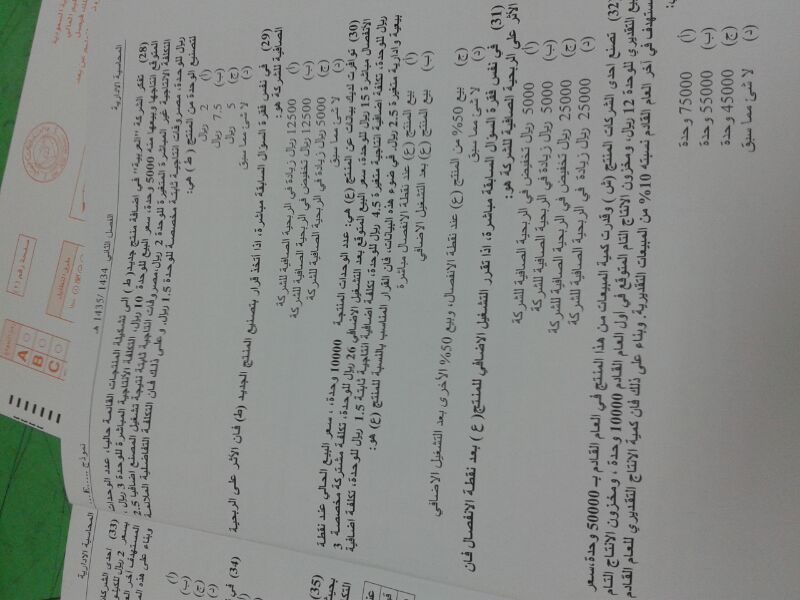 المحاسبة الادارية
الفصل الثاني 1434 /1435 هـ
نموذج
صفحة رقم
A
B
C
(28) تفكر الشركة "العربية" في اضافة منتج جديد( ط) الى تشكيلة المنتجات القائمة حاليا، عدد الوحدات
المتوقع انتاجها وبيعها منه 5000 وحدة، سعر البيع للوحدة 10 ريال، التكلفة الانتاجية المباشرة للوحدة 3 ريال،
التكلفة الانتاجية غير المباشرة المتغيرة للوحدة 2 ريال،مصروفات انتاجية ثابتة نتيجة تشغيل المصنع اضافيا 2.5
ريال للوحدة، مصروفات انتاجية ثابتة مخصصة للوحدة 1.5 ريال، وعلى ذلك فان التكلفة التفاضلية الملائمة
لتصنيع الوحدة من المنتج ( ط ) هي:
(أ) 2 ريال
(ب) 7.5 ريال
(ج) 5 ريال
(د) لا شئ مما سبق
(29) في نفس فقرة السؤال السابقة مباشرة، اذا اتخذ قرار بتصنيع المنتج الجديد (ط) فان الاثر على الربحية
الصافية للشركة هو:
(أ) 12500 ريال زيادة في الربحية الصافية للشركة
(ب) 12500 ريال تخفيض في الربحية الصافية للشركة
(ج) 5000 ريال زيادة في الربحية الصافية للشركة
(د) لا شئ مما سبق
(30) توافرت لديك بيانات عن المنتج (ع) هي: عدد الوحدات المنتجة 10000 وحدة، ، سعر البيع الحالي عند نقطة
الانفصال مباشرة 15 ريال للوحدة، سعر البيع المتوقع بعد التشغيل الاضافي 26 ريال للوحدة، تكلفة مشتركة مخصصة 3
ريال للوحدة، تكلفة اضافية انتاجية متغيرة 4.5 ريال للوحدة، تكلفة اضافية انتاجية ثابتة 1.5 ريال للوحدة، تكلفة اضافية
بيعية وادارية متغيرة 2.5 ريال، في ضوء هذه البيانات، فان القرار المناسب بالنسبة للمنتج (ع) هو:
(أ) بيع المنتج (ع) عند نقطة الانفصال مباشرة
(ب) بيع المنتج (ع) بعد التشغيل الاضافي
(ج) بيع 50% من المنتج (ع) عند نقطة الانفصال، وبيع 50% الأخرى بعد التشغيل الاضافي
(د) لا شئ مما سبق
(31) في نفس فقرة السؤال السابقة مباشرة، اذا تقرر التشغيل الاضافي للمنتج( ع ) بعد نقطة الانفصال فان
الأثر على الربحية الصافية للشركة هو:
(أ) 5000 ريال تخفيض في الربحية الصافية للشركة
(ب) 5000 ريال زيادة في الربحية الصافية للشركة
(ج) 25000 ريال تخفيض في الربحية الصافية للشركة
(د) 25000 ريال زيادة في الربحية الصافية للشركة
(32) تصنع احدى الشركات المنتج (ش) وقدرت كمية المبيعات من هذا المنتج في العام القادم بـ 50000 وحدة،سعر
البيع التقديري للوحدة 12 ريال، ومخزون الانتاج التام المتوقع في اول العام القادم 10000 وحدة ، ومخزون الانتاج التام
المستهدف في اخر العام القادم نسبته 10% من المبيعات التقديرية، وبناء على ذلك فان كمية الانتاج التقديري للعام القادم
(أ) 75000 وحدة
(ب) 55000 وحدة
(ج) 45000 وحدة
(د) لا شئ مما سبق
المحاسبة الادارية
(33) احدى الشركات
بسعر 2 ريال للكيلو
المستهدف اخر العا
وبناء على هذه الم
(أ)
(ب)
(ج)
(د)
(34) في
(35)